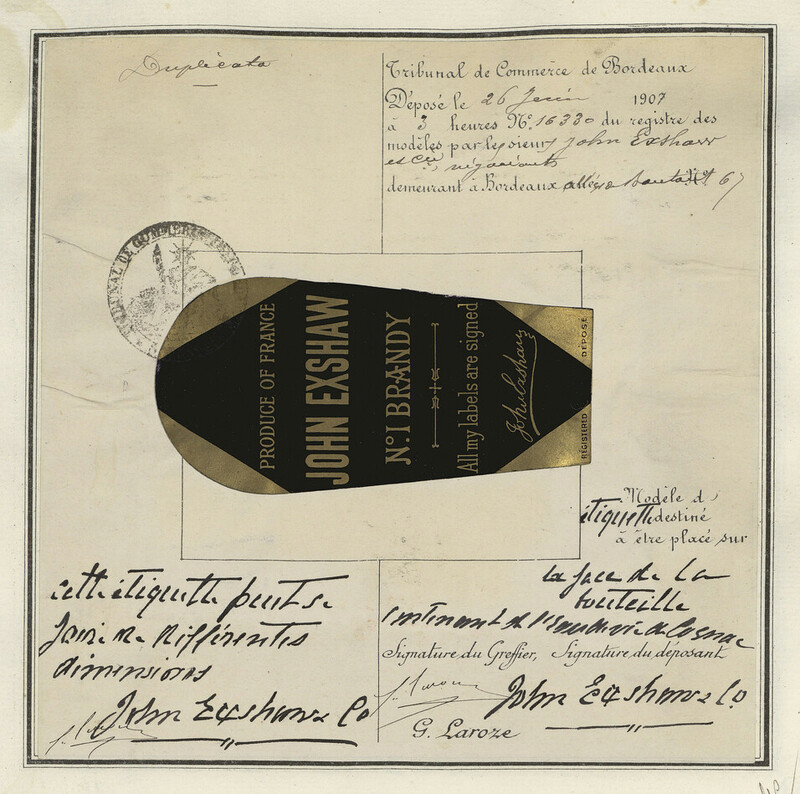 Duplicata
Tribunal de Commerce de Bordeaux
Déposé le 26 Juin 1907
à 3 heures No. 16330 du registre des
modèles par les sieurs John Exshaw
et Cie, négociants
demeurant à Bordeaux allées de No 67
TRIBUNAL DE COMMERCE DE
PRODUCE OF FRANCE
JOHN EXSHAW
No. 1 BRANDY
All my labels are signed
John Exshaw
REGISTERED DÉPOSÉ
Modèle d'
étiquette destiné
à être placé sur
la face de la
bouteille
contenant de l'Eau de vie de Cognac
Signature du Greffier, Signature du déposant
John Exshaw & Co
G. Laroze
cette étiquette peut se
faire de différentes
dimensions
John Exshaw & Co